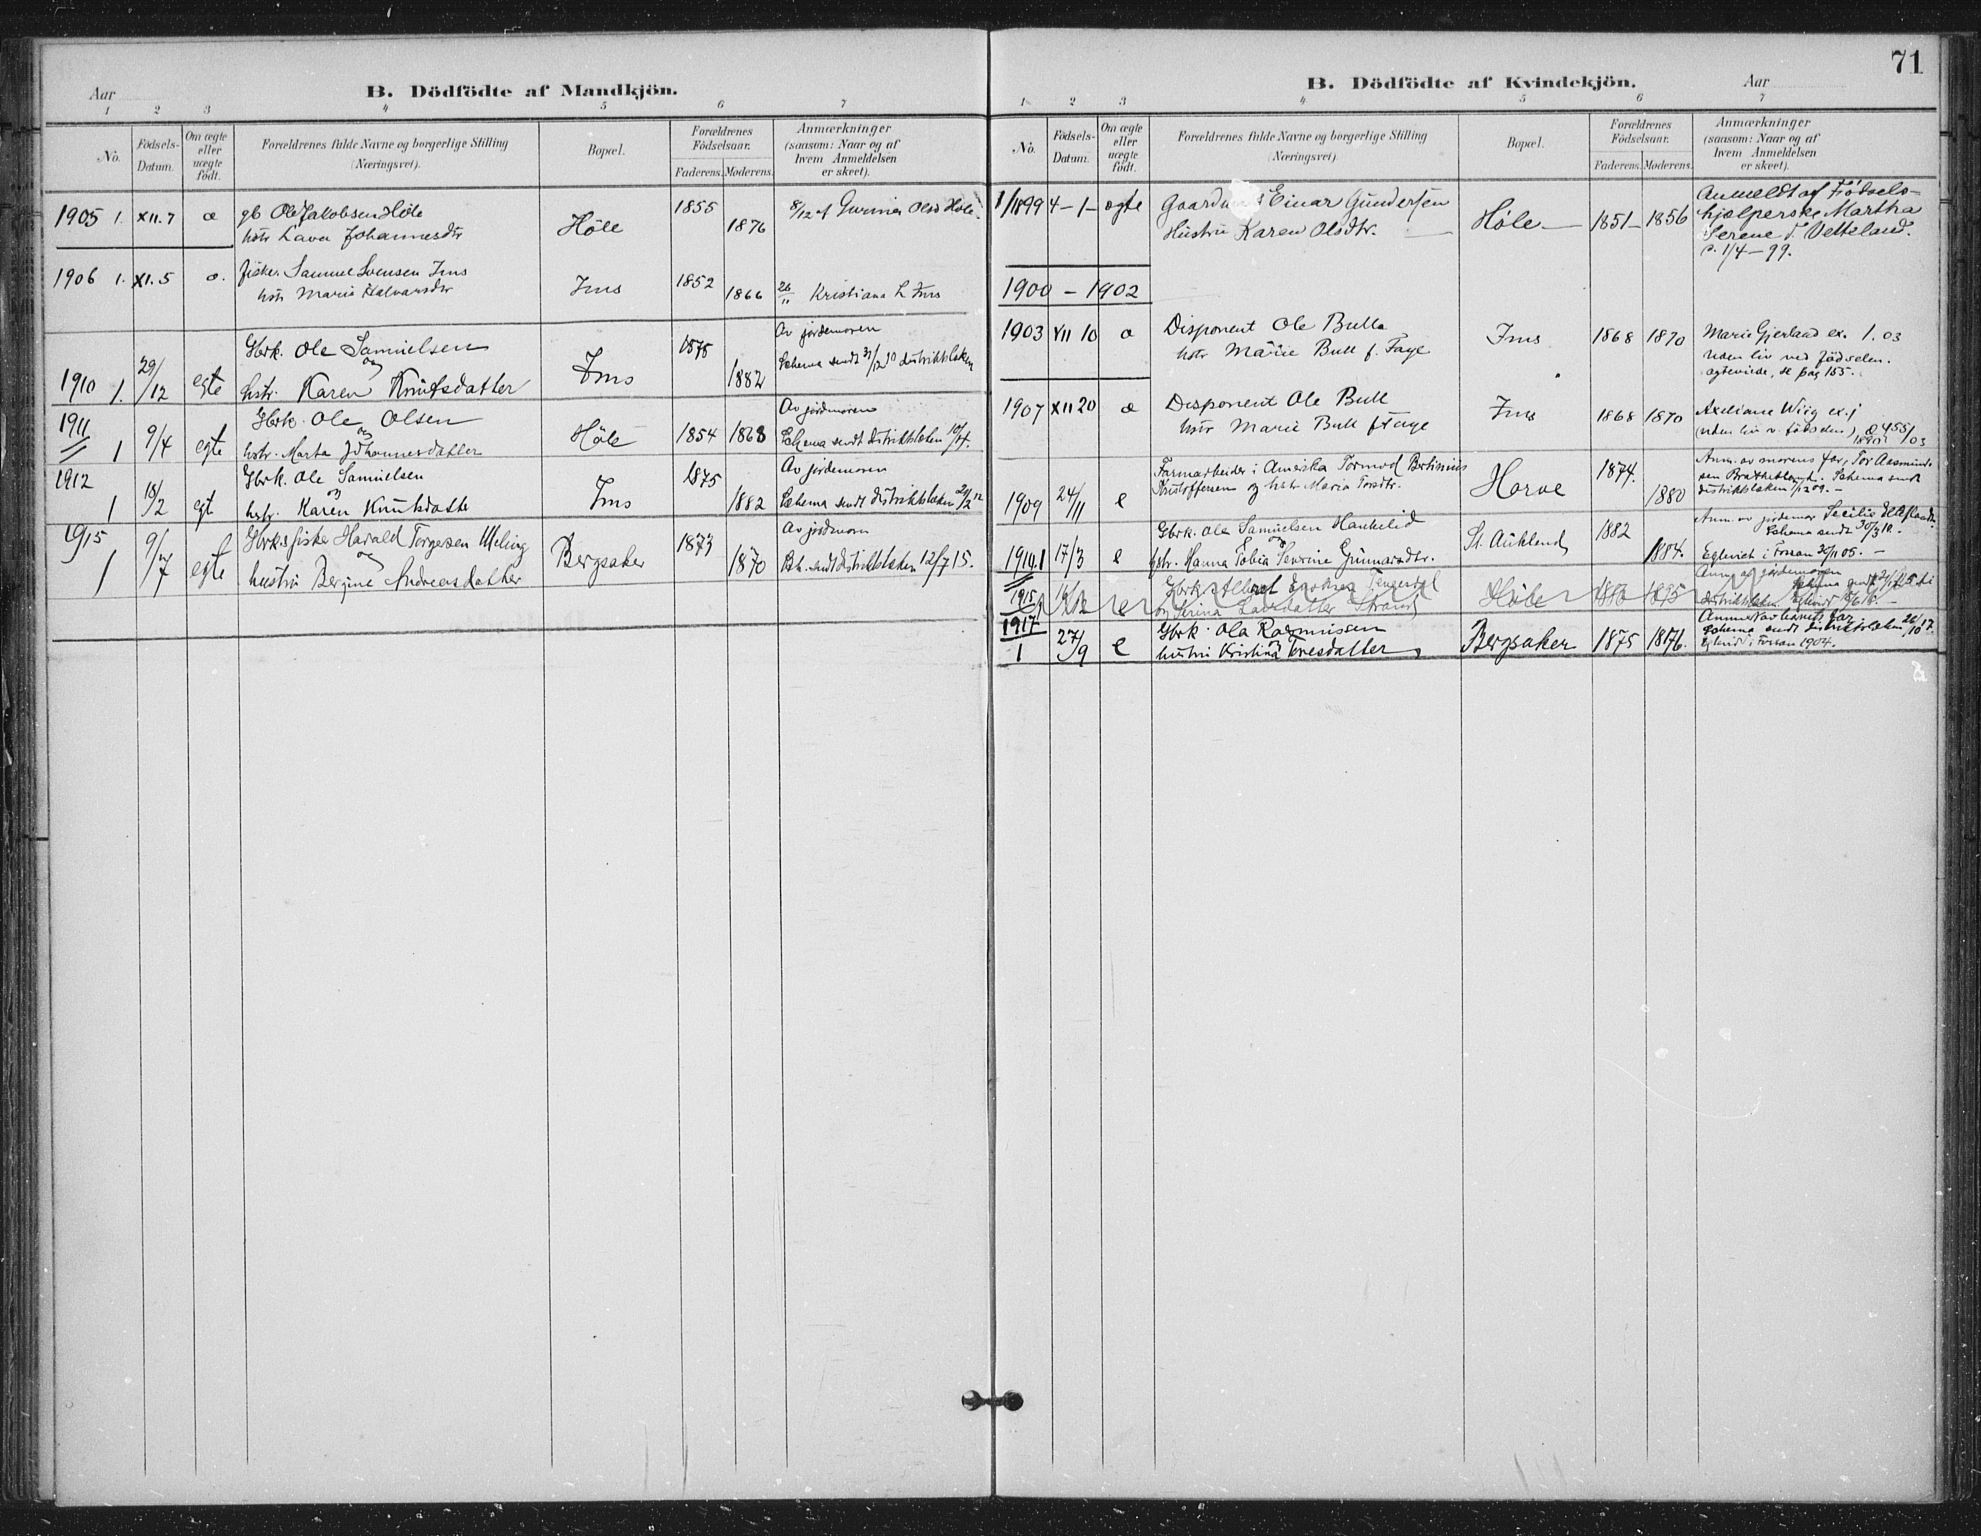 71
Aar
B. Dödfödte af Mandkjön.
1 2 3 4 5 6 7
No. Födsels-Datum. Om ægte eller uægte födt. Forældrenes fulde Navne og borgerlige Stilling (Næringsvei). Bopæl. Forældrenes Födselsaar. Faderens. Moderens. Anmærkninger (saasom: Naar og af hvem Anmeldelsen er skeet).
1905 1. XII. 7 æ gb Ole Jakobsen Høle Høle 1855 8/12 af Olsd Høle
hstr Lava Johannesdtr 1876
1906 1. XI. 5 æ. fisker Samuel Svensen Ims Ims 1852
hstr Marie Halvarsdtr 1866 26/11 Kristiana L Ims
Gbrk. Ole Samuelsen 1875 Av jordemoren
og
1910 1. 29/12 egte hstr. Karen Knutsdatter Ims 1882 Schema sendt 31/12 10 distriktslæken
1911 Gbrk. Ole Olsen Av jordmoren
og
1 9/4 egte hstr. Marta Johannesdatter Høle 1854 1868 Schema sendt distriktslæken 10/4.
1912 Gbrk. Ole Samuelsen 1875 Av jordemoren
og
1 18/2 egt hstr. Karen Knutsdatte Ims 1882 Schema sendt distriktslæken 21/2 12
1915 Gbrk. & fisker Harald Torgersen Meling Bergsaker 1873 Av jordmoren
og
1 9/7 egte hustru Bergine Andreasdatter 1870 sendt distriktslæken 12/7 15.
B. Dödfödte af Kvindekjön.
Aar
1 2 3 4 5 6 7
No. Födsels-Datum. Om ægte eller uægte födt. Forældrenes fulde Navne og borgerlige Stilling (Næringsvei). Bopæl. Forældrenes Födselsaar. Faderens. Moderens. Anmærkninger (saasom: Naar og af hvem Anmeldelsen er skeet).
1/1899 4-1- ægte Einar Gundersen Høle 1851 1856 Anmeldt af Fødsels-
Hustru Karen Olsdtr. hjælperske Martha
Serene d. Vetteland.
d. 1/4-99.
1900 - 1902
1903 XII 10 æ Disponent Ole Bull Ims 1868 1870 Marie Gjerland ex. 1. 03
hstr Marie Bull f. Faye uden liv ved fødselen.
ægteviede, se pag 155.
1907 XII 20 æ Disponent Ole Bull Ims 1868 1870 Axeliane Wiig ex. j
hstr Marie Bull f Faye (uden liv v. fødselen)
Farmarbeider i Amerika Tormod Bertinius Horve 1874. Anm. av morens far, Tor Aasmund-
1909 24/11 e Kristoffersen og hstr Maria Torsdtr. 1880 sen Bratheteland. Schema sendt
distriktslæken 1/12 09. -
Gbrk. Ole Samuelsen Haukelid St. Aukland 1882 Anm. av jordemor Cecilie Helleland.
og Schema sendt 30/3 10.
1910. 1 17/3 e hstr. Hanna Tobia Severine Gunnarsdtr. 1884. Egteviet i Forsan 30/11 05. -
1915 e Gbrk. Albert Høle 1880 1895 Anm. af jordemoren
Serina Larsdatter Strand
1917 Gbrk. Ola Rasmussen Anmeldt av barnets far
og
1 27/9 e hustru Kristina Tonesdatter Bergsaker 1875 1876. Schema sendt distriktslæken 26/10 17.
Egtevid i Forsan 1904.